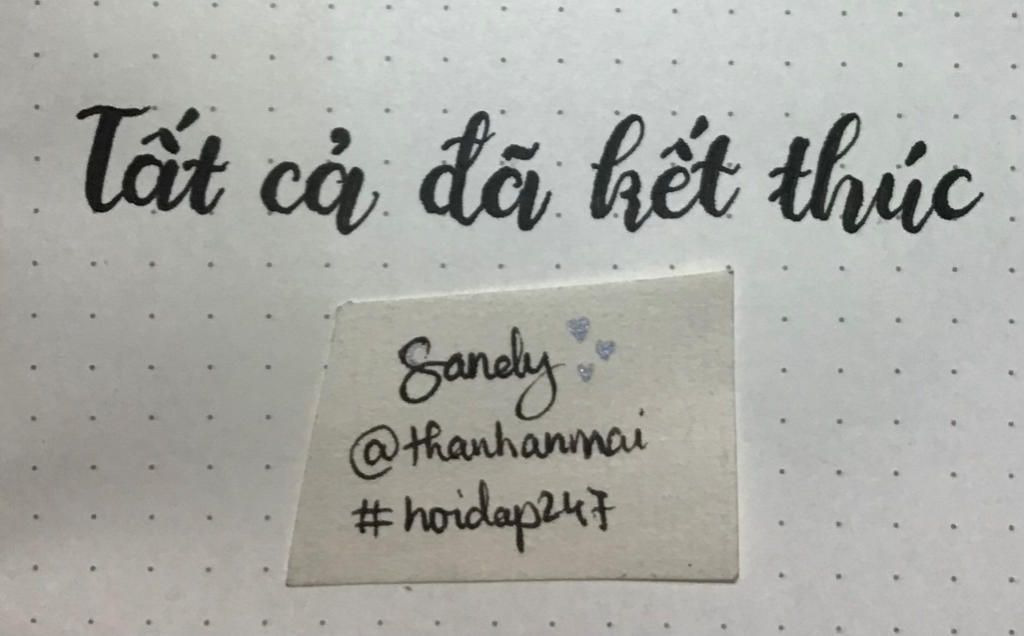 Tất cả đã kết thúc
Sandy
@thanhanmai
#hoidap247